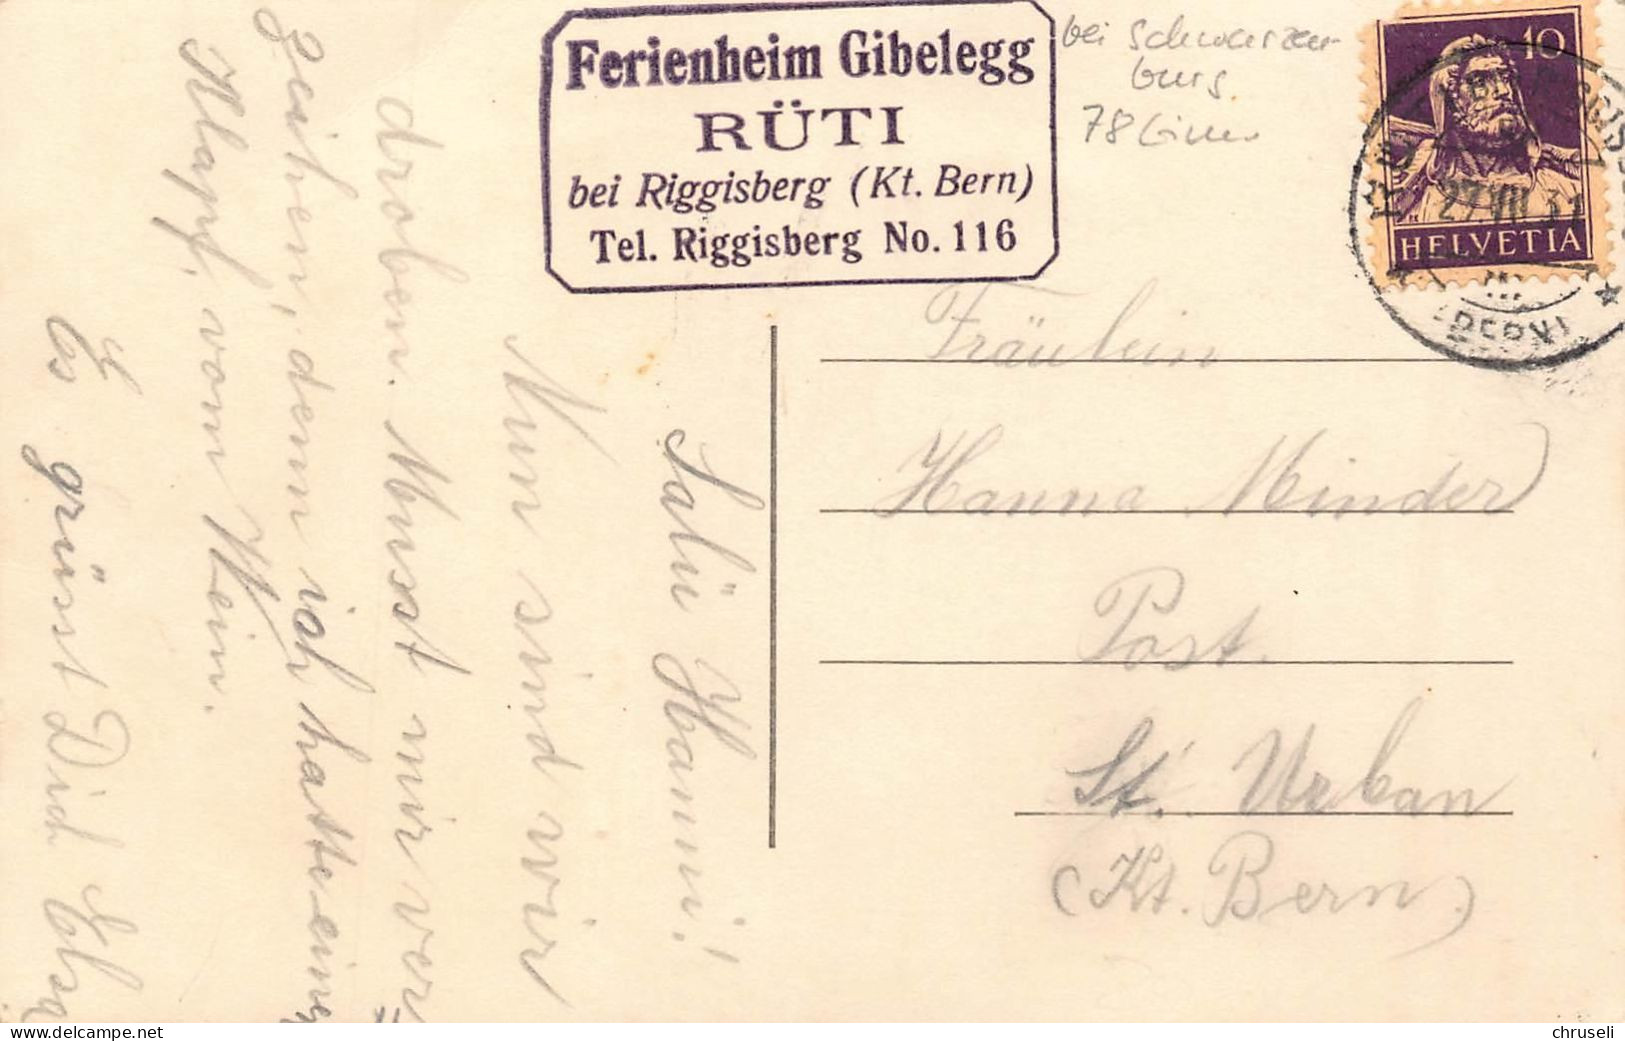 Ferienheim Gibelegg
RÜTI
bei Riggisberg (Kt. Bern)
Tel. Riggisberg No. 116
bei Schwarzen-
burg
10
27 VII 31
HELVETIA
(BERN)
Salü Hanni!
Nun sind wir
droben. Musst mir ver=
zeihen, denn ich hatte einen
Klapf, vom Wein.
Es grüsst Did Elsa
Fräulein
Hanna Minder
Post.
St. Urban
(Kt. Bern)
chruseli